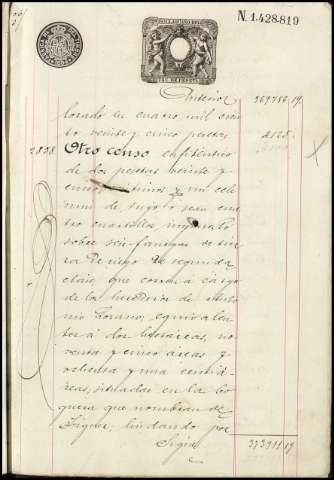 N. 1.428.819
Anterior 369786,19
lorado en cuatro mil cien
to veinte y cinco pesetas 4125
2858 Otro censo enfitéutico
de dos pesetas veinte y
cinco céntimos y un cele
mín de trigo o sean cua
tro cuartillos, impuesto
sobre seis fanegas de tie
rra de riego de segunda
clase, que corren a cargo
de los herederos de Anto
nio Lozano; equivalen
tes á dos hectáreas, no
venta y cinco áreas y
ochenta y una centiá
reas, situadas en la bo
quera que nombran de
lindando por
373911,19